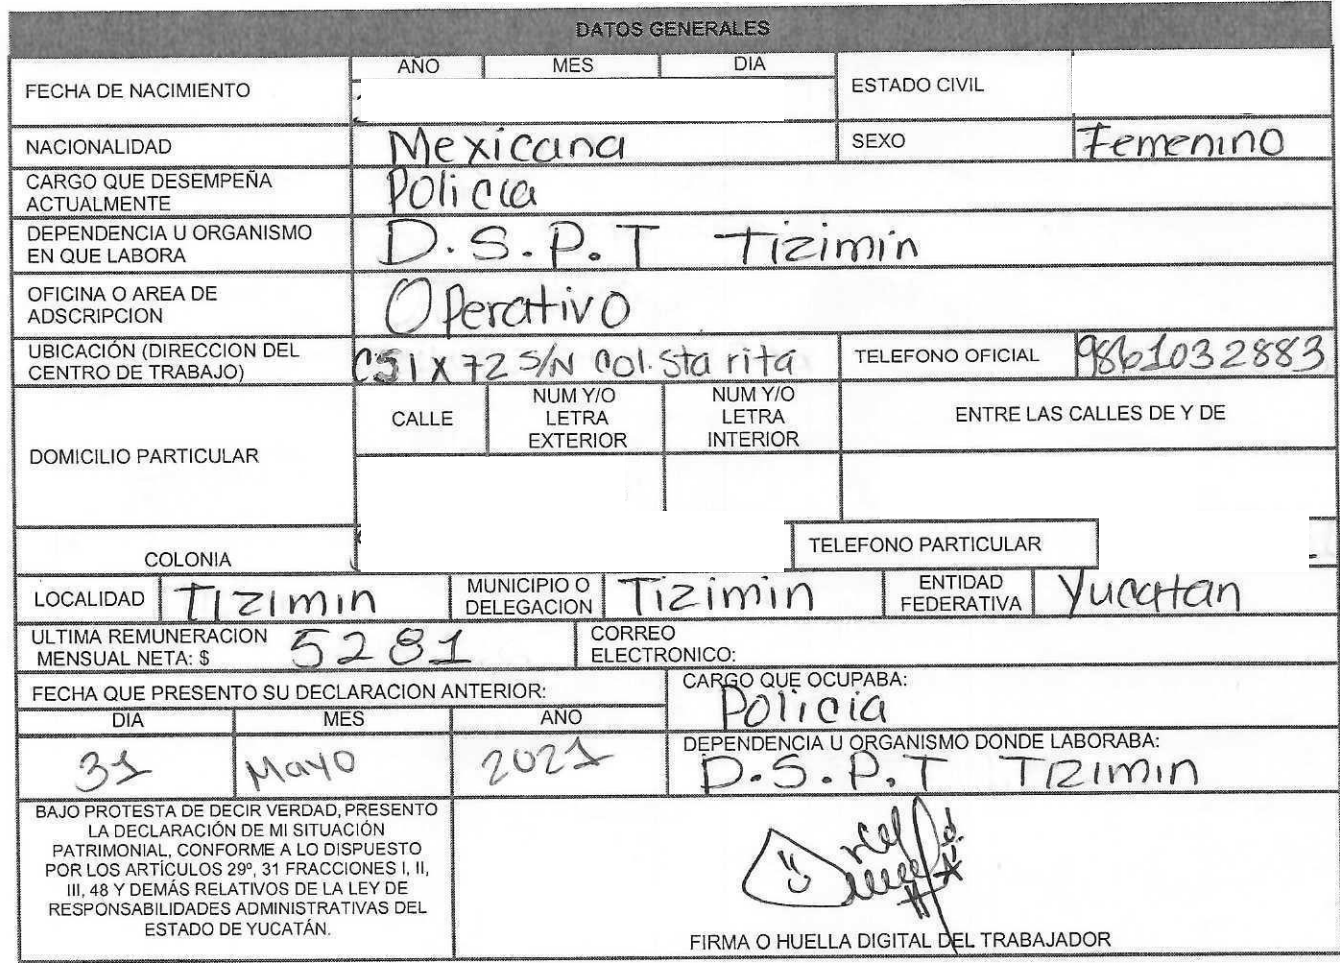 DATOS GENERALES
FECHA DE NACIMIENTO
AÑO MES DIA
ESTADO CIVIL
NACIONALIDAD Mexicana SEXO Femenino
CARGO QUE DESEMPEÑA
ACTUALMENTE
Policia
DEPENDENCIA U ORGANISMO
EN QUE LABORA
D.S.P.T Tizimin
OFICINA O AREA DE
ADSCRIPCION
Operativo
UBICACIÓN (DIRECCION DEL
CENTRO DE TRABAJO)
C51 x 72 S/N Col. Sta rita
TELEFONO OFICIAL 9861032883
DOMICILIO PARTICULAR
CALLE
NUM Y/O
LETRA
EXTERIOR
NUM Y/O
LETRA
INTERIOR
ENTRE LAS CALLES DE Y DE
COLONIA
TELEFONO PARTICULAR
LOCALIDAD Tizimin
MUNICIPIO O
DELEGACION
Tizimin
ENTIDAD
FEDERATIVA
Yucatan
ULTIMA REMUNERACION
MENSUAL NETA: $ 5281
CORREO
ELECTRONICO:
FECHA QUE PRESENTO SU DECLARACION ANTERIOR:
DIA MES AÑO
31 Mayo 2021
CARGO QUE OCUPABA:
Policia
DEPENDENCIA U ORGANISMO DONDE LABORABA:
D.S.P.T Tizimin
BAJO PROTESTA DE DECIR VERDAD, PRESENTO
LA DECLARACIÓN DE MI SITUACIÓN
PATRIMONIAL, CONFORME A LO DISPUESTO
POR LOS ARTÍCULOS 29º, 31 FRACCIONES I, II,
III, 48 Y DEMÁS RELATIVOS DE LA LEY DE
RESPONSABILIDADES ADMINISTRATIVAS DEL
ESTADO DE YUCATÁN.
FIRMA O HUELLA DIGITAL DEL TRABAJADOR